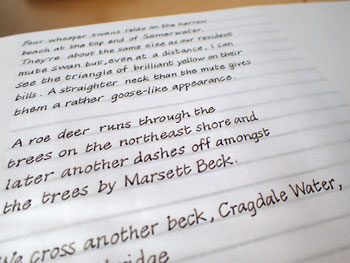 Four whooper swans relax on the narrow
beach at the top end of Semerwater.
They're about the same size as our resident
mute swan but, even at a distance, I can
see the triangle of brilliant yellow on their
bills. A straighter neck than the mute gives
them a rather goose-like appearance.
A roe deer runs through the
trees on the northeast shore and
later another dashes off amongst
the trees by Marsett Beck.
We cross another beck, Cragdale Water,
bridge